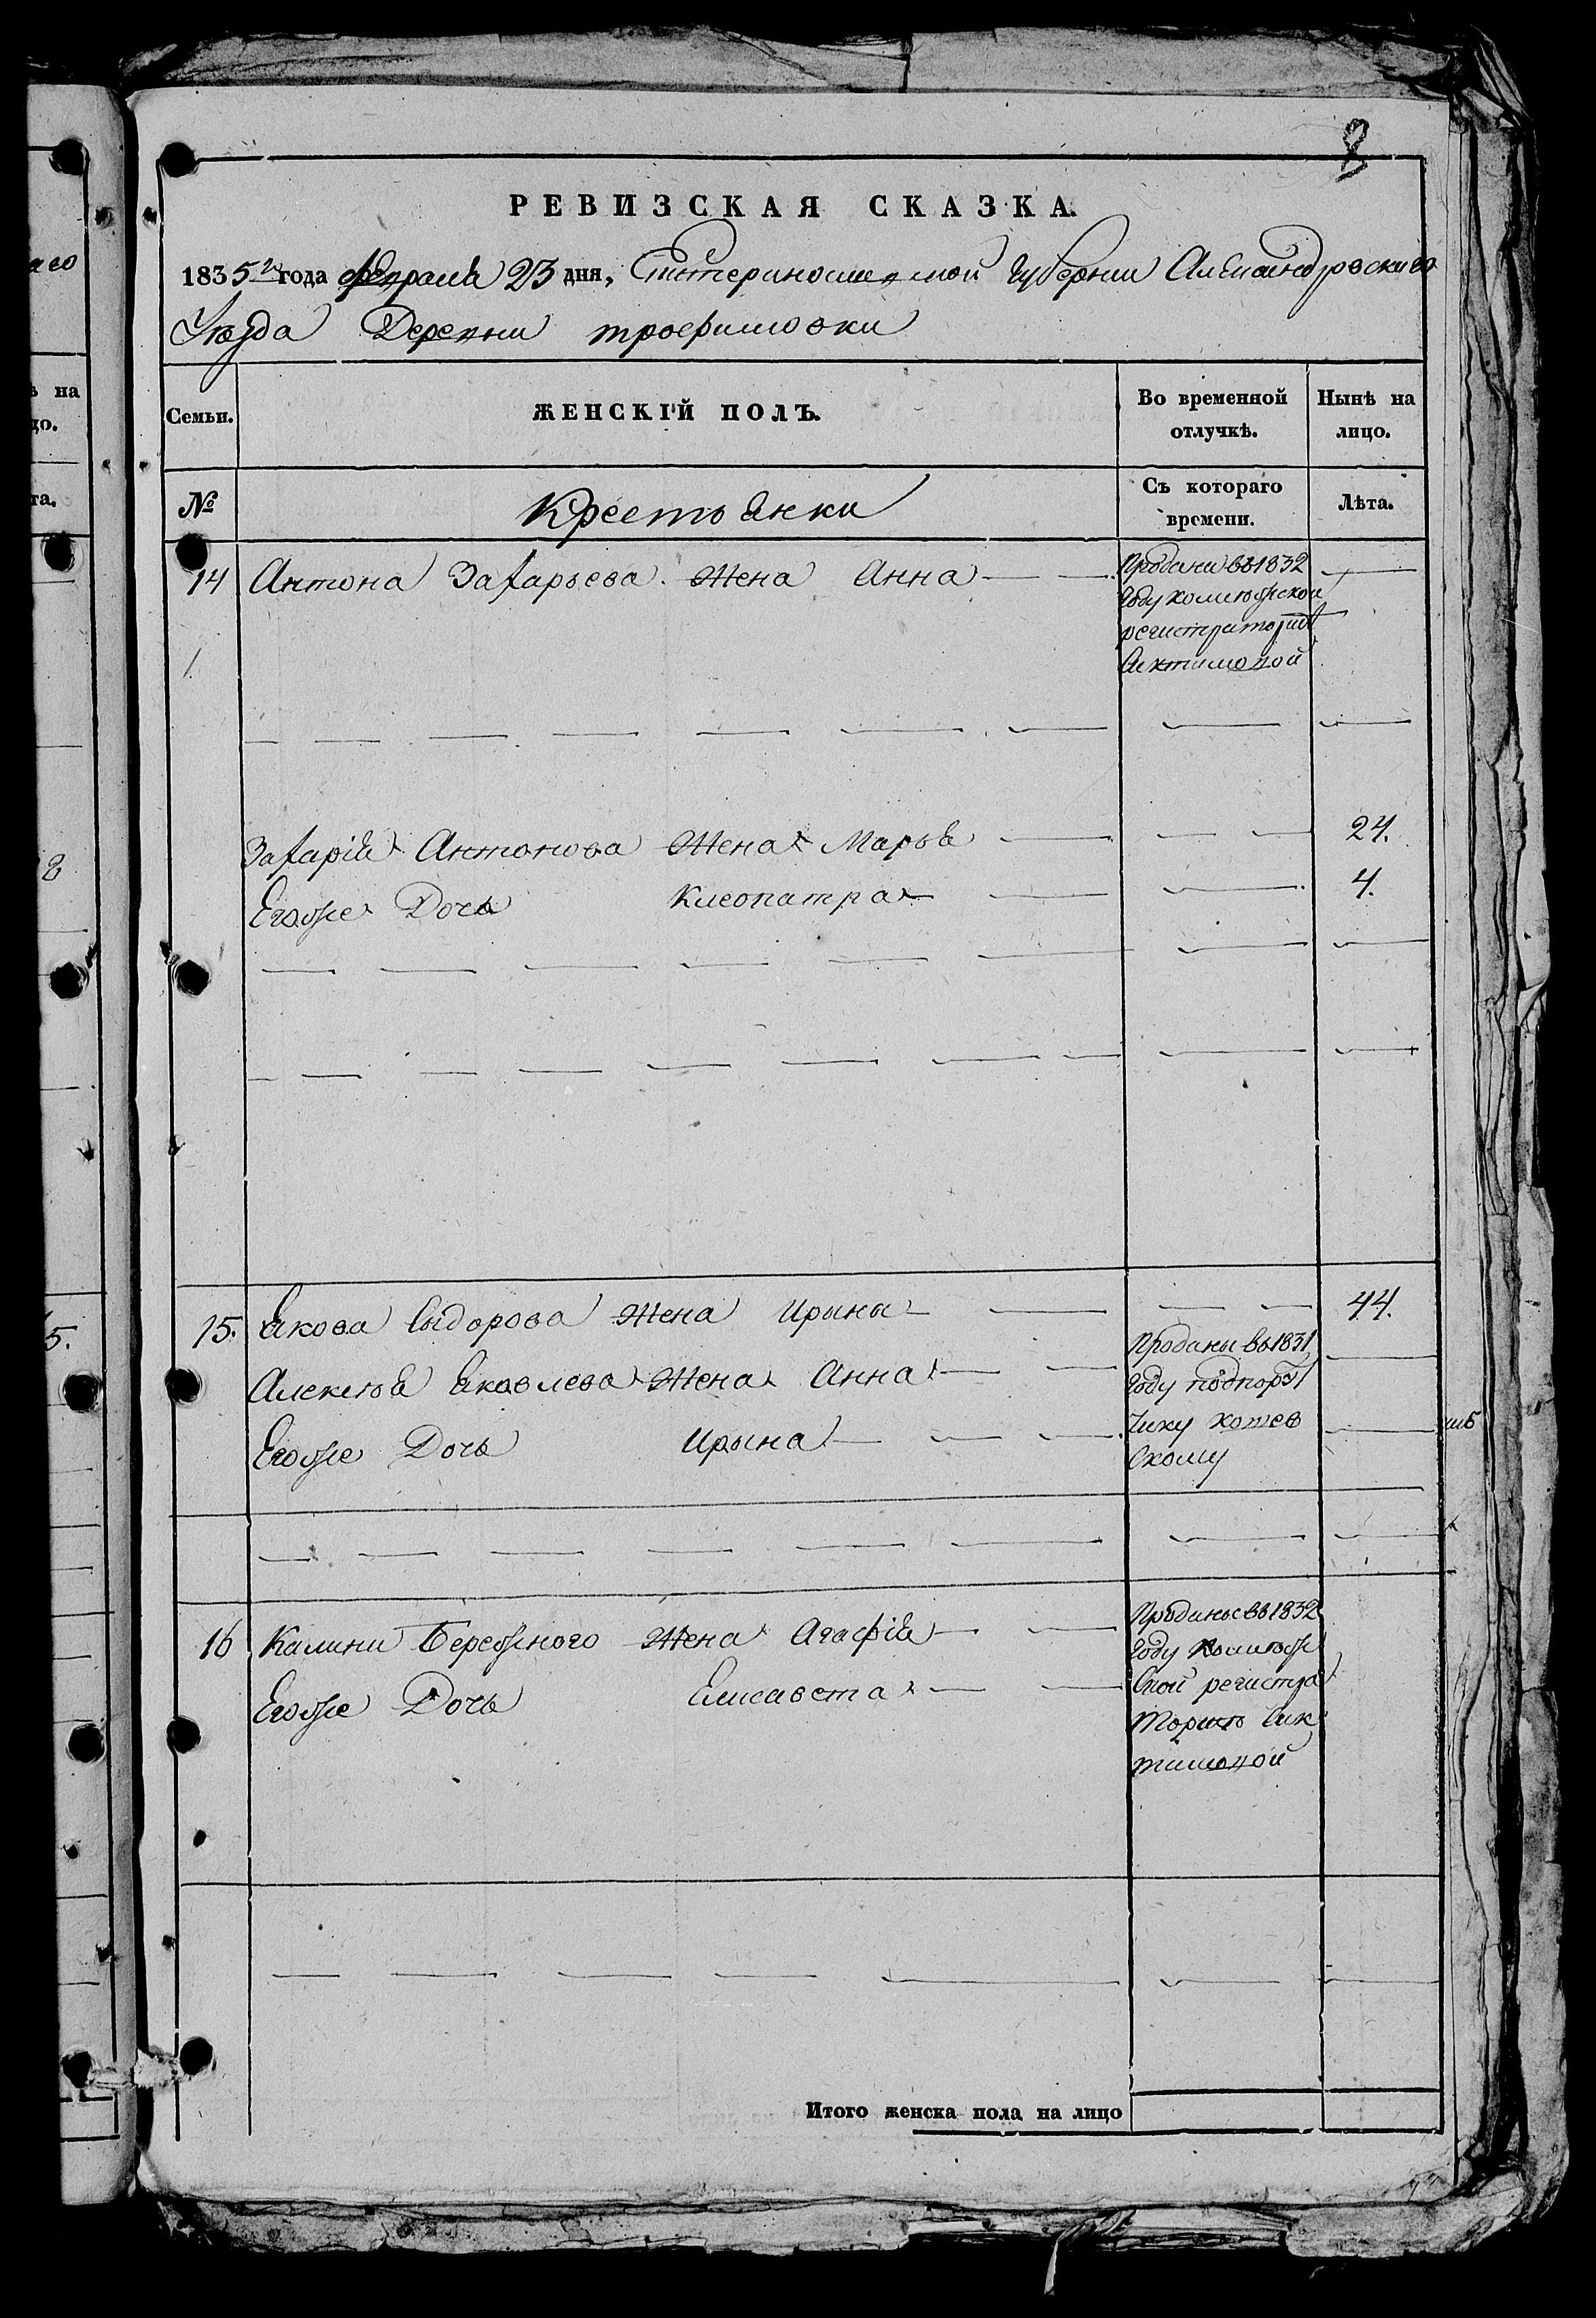 8
РЕВИЗСКАЯ СКАЗКА.
1835го года февраля 23 дня, Екатеринославской Губернии Александровскаго
Уѣзда Деревни трофимовки
Семьи.
ЖЕНСКІЙ ПОЛЪ.
Во временной отлучкѣ.
Нынѣ на лицо.
№
Крестьянки
Съ котораго времени.
Лѣта.
14 Антона Захарьева Жена Анна
Проданы въ 1832
году колежской
регистраторше
Захарія Антонова Жена Марья 24.
Егоже Дочь Клеопатра 4.
15. Якова Сыдорова Жена Ирына 44.
Алексѣя Яковлева Жена Анна
Егоже Дочь Ирына
Проданы въ 1831
году подпору
чику котев
скому
16 Калины Бережного Жена Агафія
Егоже Дочь Елисавета
Проданы въ 1832
году колеж
ской регистра
Итого женска пола на лицо